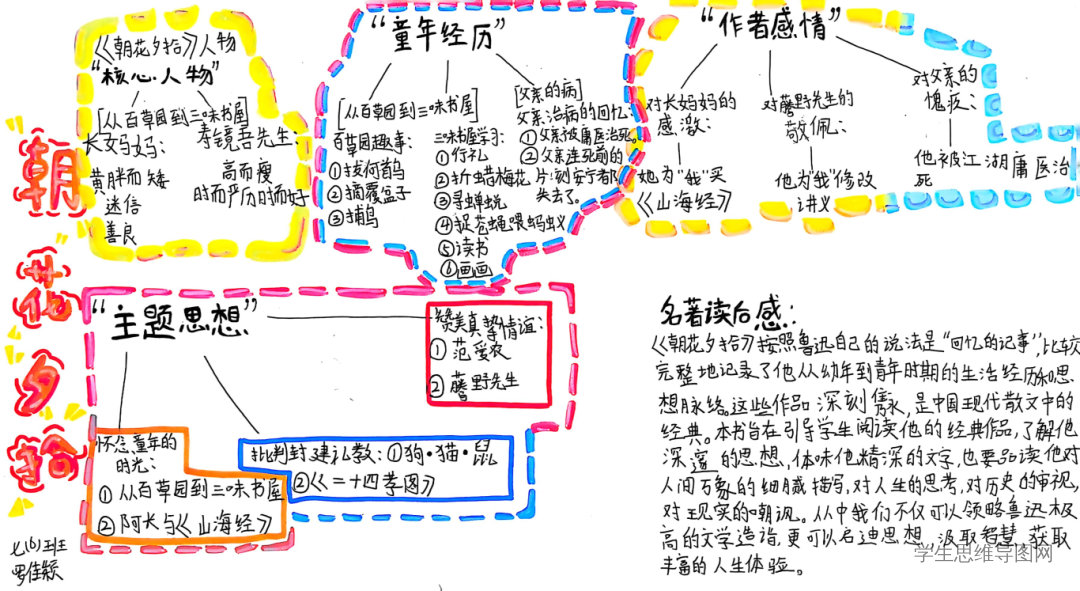 朝花夕拾
《朝花夕拾》人物
“核心人物”
[从百草园到三味书屋]
长妈妈:
黄胖而矮
迷信
善良
寿镜吾先生:
高而瘦
时而严厉时而好
“童年经历”
[从百草园到三味书屋]
百草园趣事:
①拔何首乌
②摘覆盆子
③捕鸟
三味书屋学习:
①行礼
②折蜡梅花
③寻蝉蜕
④捉苍蝇喂蚂蚁
⑤读书
⑥画画
[父亲的病]
父亲治病的回忆:
①父亲被庸医治死。
②父亲连死前的
片刻安宁都
失去了。
“作者感情”
对长妈妈的
感激:
她为“我”买
《山海经》
对藤野先生的
敬佩:
他为“我”修改
讲义
对父亲的
愧疚:
他被江湖庸医治
死
“主题思想”
赞美真挚情谊:
①范爱农
②藤野先生
怀念童年的
时光:
①从百草园到三味书屋
②阿长与《山海经》
批判封建礼教:①狗·猫·鼠
②《二十四孝图》
七(6)班
罗佳颖
名著读后感:
《朝花夕拾》按照鲁迅自己的说法是“回忆的记事”,比较
完整地记录了他从幼年到青年时期的生活经历和思
想脉络。这些作品深刻隽永,是中国现代散文中的
经典。本书旨在引导学生阅读他的经典作品,了解他
深邃的思想,体味他精深的文字,也要品读他对
人间万象的细腻描写,对人生的思考,对历史的审视,
对现实的嘲讽。从中我们不仅可以领略鲁迅极
高的文学造诣,更可以启迪思想,汲取智慧,获取
丰富的人生体验。
学生思维导图网